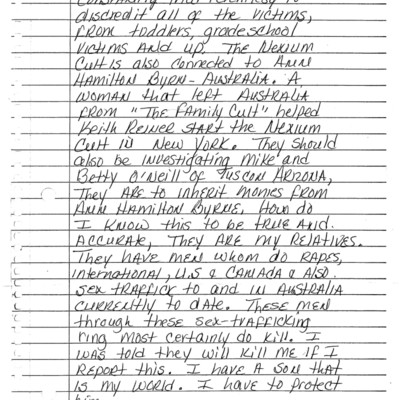 discredit all of the victims,
from toddlers, gradeschool
victims and up. The Nexium
Cult is also connected to Ann
Hamilton Byrn-Australia. A
woman that left Australia
from "The Family Cult" helped
Keith Reiner start the Nexium
Cult in New York. They should
also be investigating Mike and
Betty O'Neill of Tuscon Arizona,
They are to inherit monies from
Ann Hamilton Byrne. How do
I know this to be true and
accurate, they are my relatives.
They have men whom do rapes,
international, U.S & Canada & also
sex traffick to and in Australia
currently to date. These men
through these sex-trafficking
ring most certainly do kill. I
was told they will kill me if I
report this. I have a son that
is my world. I have to protect
him